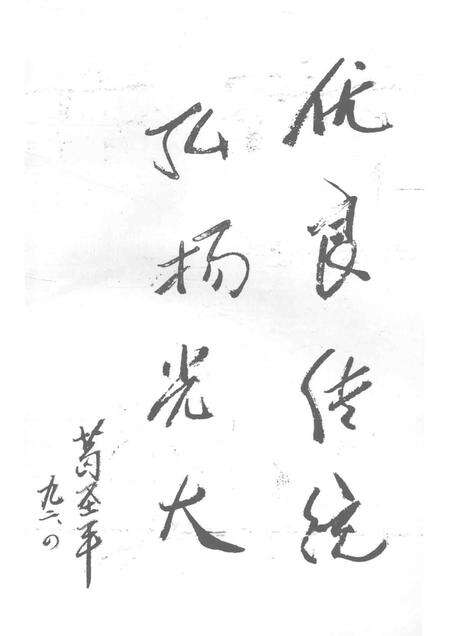 优良传统
弘扬光大
葛圣平
九二、六